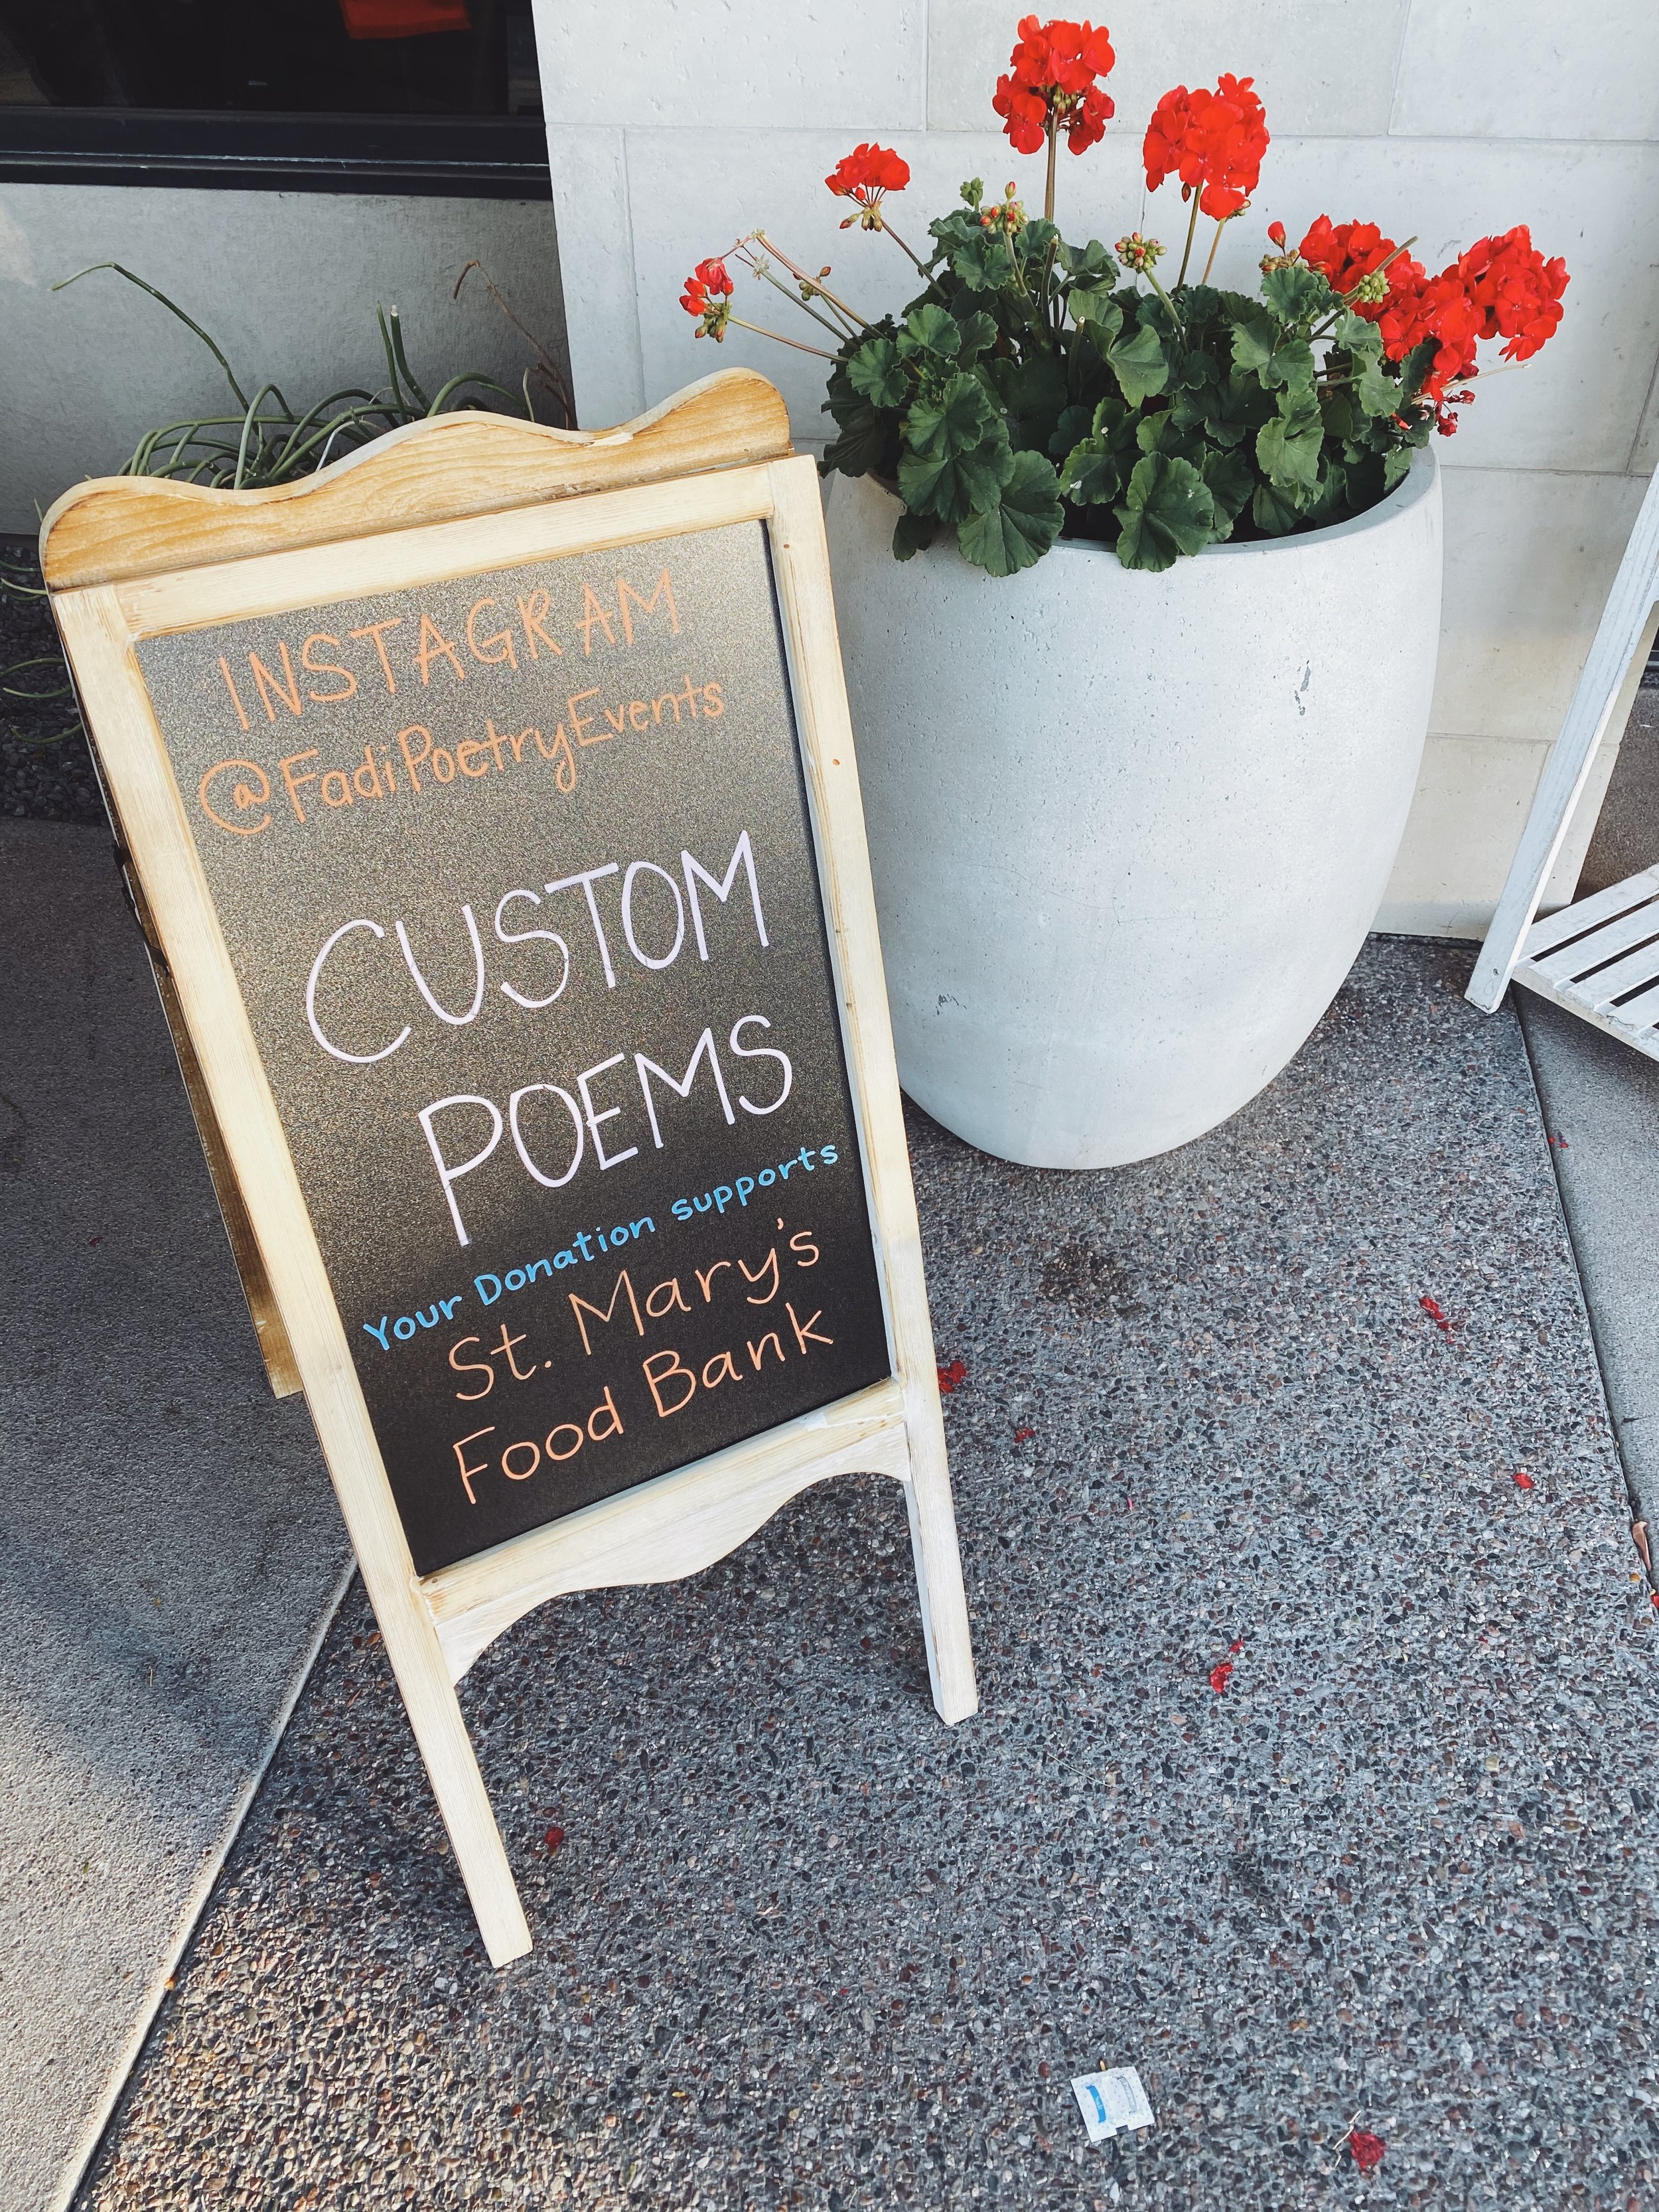 INSTAGRAM
@FadiPoetryEvents
CUSTOM
POEMS
Your Donation supports
St. Mary's
Food Bank